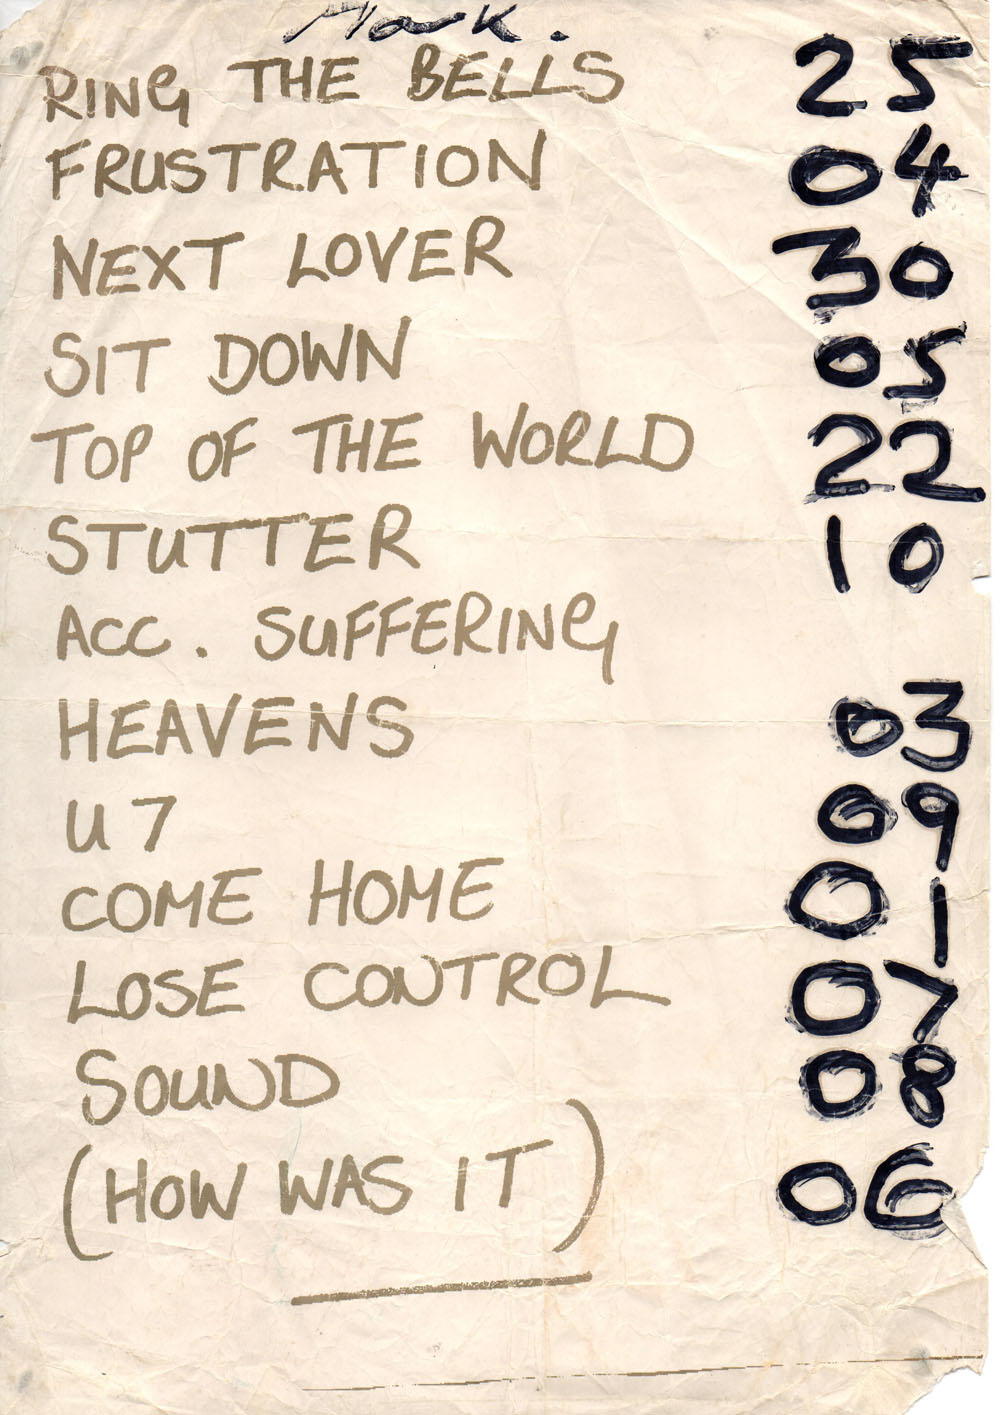 Mark.
RING THE BELLS 25
FRUSTRATION 04
NEXT LOVER 30
SIT DOWN 05
TOP OF THE WORLD 22
STUTTER 10
ACC. SUFFERING
HEAVENS 03
U7 09
COME HOME 01
LOSE CONTROL 07
SOUND 08
(HOW WAS IT) 06